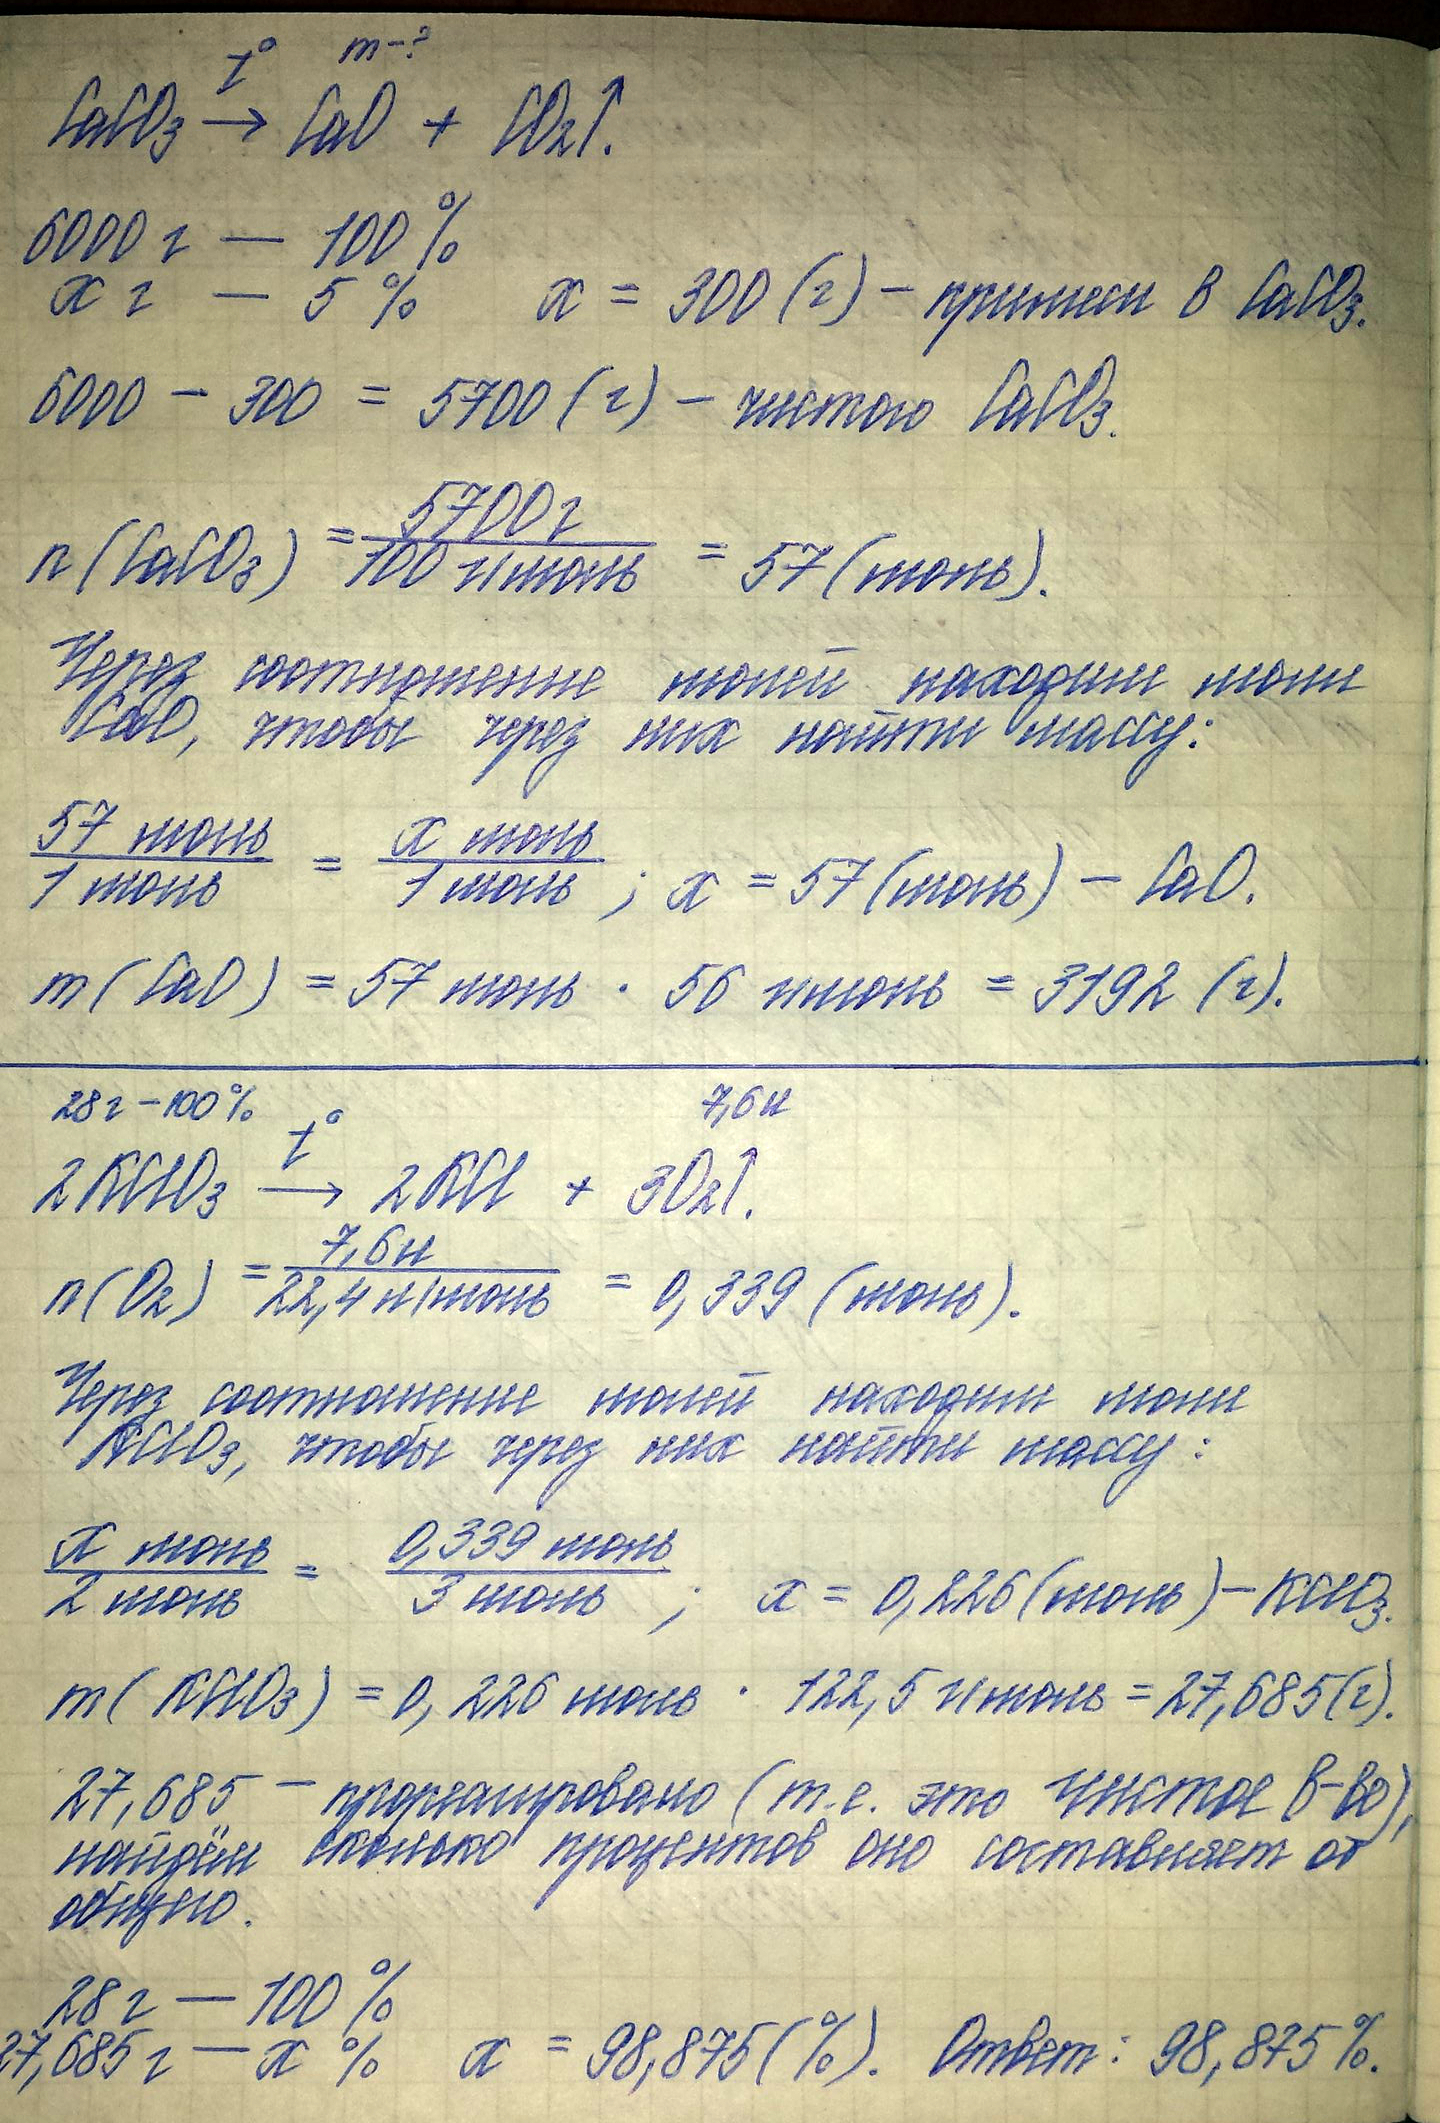 t° m-?
CaCO₃ → CaO + CO₂↑.
6000 г — 100 %
x г — 5 % x = 300 (г) – примеси в CaCO₃.
6000 – 300 = 5700 (г) – чистого CaCO₃.
n(CaCO₃) = 5700 г / 100 г/моль = 57 (моль).
Через соотношение молей находим моли
CaO, чтобы через них найти массу:
57 моль / 1 моль = x моль / 1 моль ; x = 57 (моль) – CaO.
m(CaO) = 57 моль · 56 г/моль = 3192 (г).
28 г – 100 % t° 7,6 л
2KClO₃ → 2KCl + 3O₂↑.
n(O₂) = 7,6 л / 22,4 л/моль = 0,339 (моль).
Через соотношение молей находим моли
KClO₃, чтобы через них найти массу:
x моль / 2 моль = 0,339 моль / 3 моль ; x = 0,226 (моль) – KClO₃.
m(KClO₃) = 0,226 моль · 122,5 г/моль = 27,685 (г).
27,685 – прореагировано (т.е. это чистое в-во),
найдём сколько процентов оно составляет от
общего.
28 г — 100 %
27,685 г — x % x = 98,875 (%). Ответ: 98,875 %.